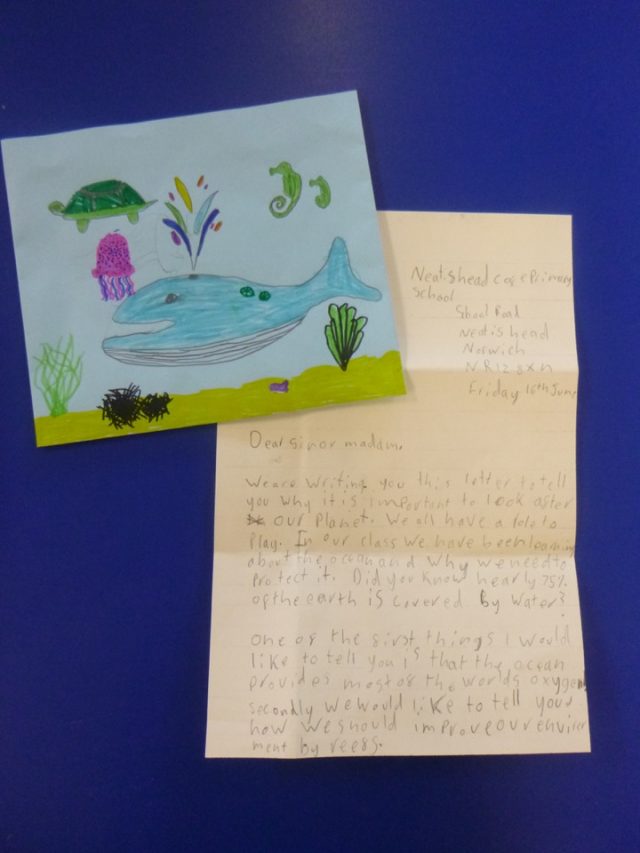 Neatishead c of e Primary
School
School Road
Neatishead
Norwich
NR12 8XN
Friday 16th June
Dear sir or madam,
We are writing you this letter to tell
you why it is important to look after
our Planet. We all have a role to
play. In our class we have been learning
about the ocean and why we need to
protect it. Did you know nearly 75%
of the earth is covered by water?
One of the first things I would
like to tell you is that the ocean
provides most of the worlds oxygen
secondly we would like to tell you
how we should improve our envirer
ment by